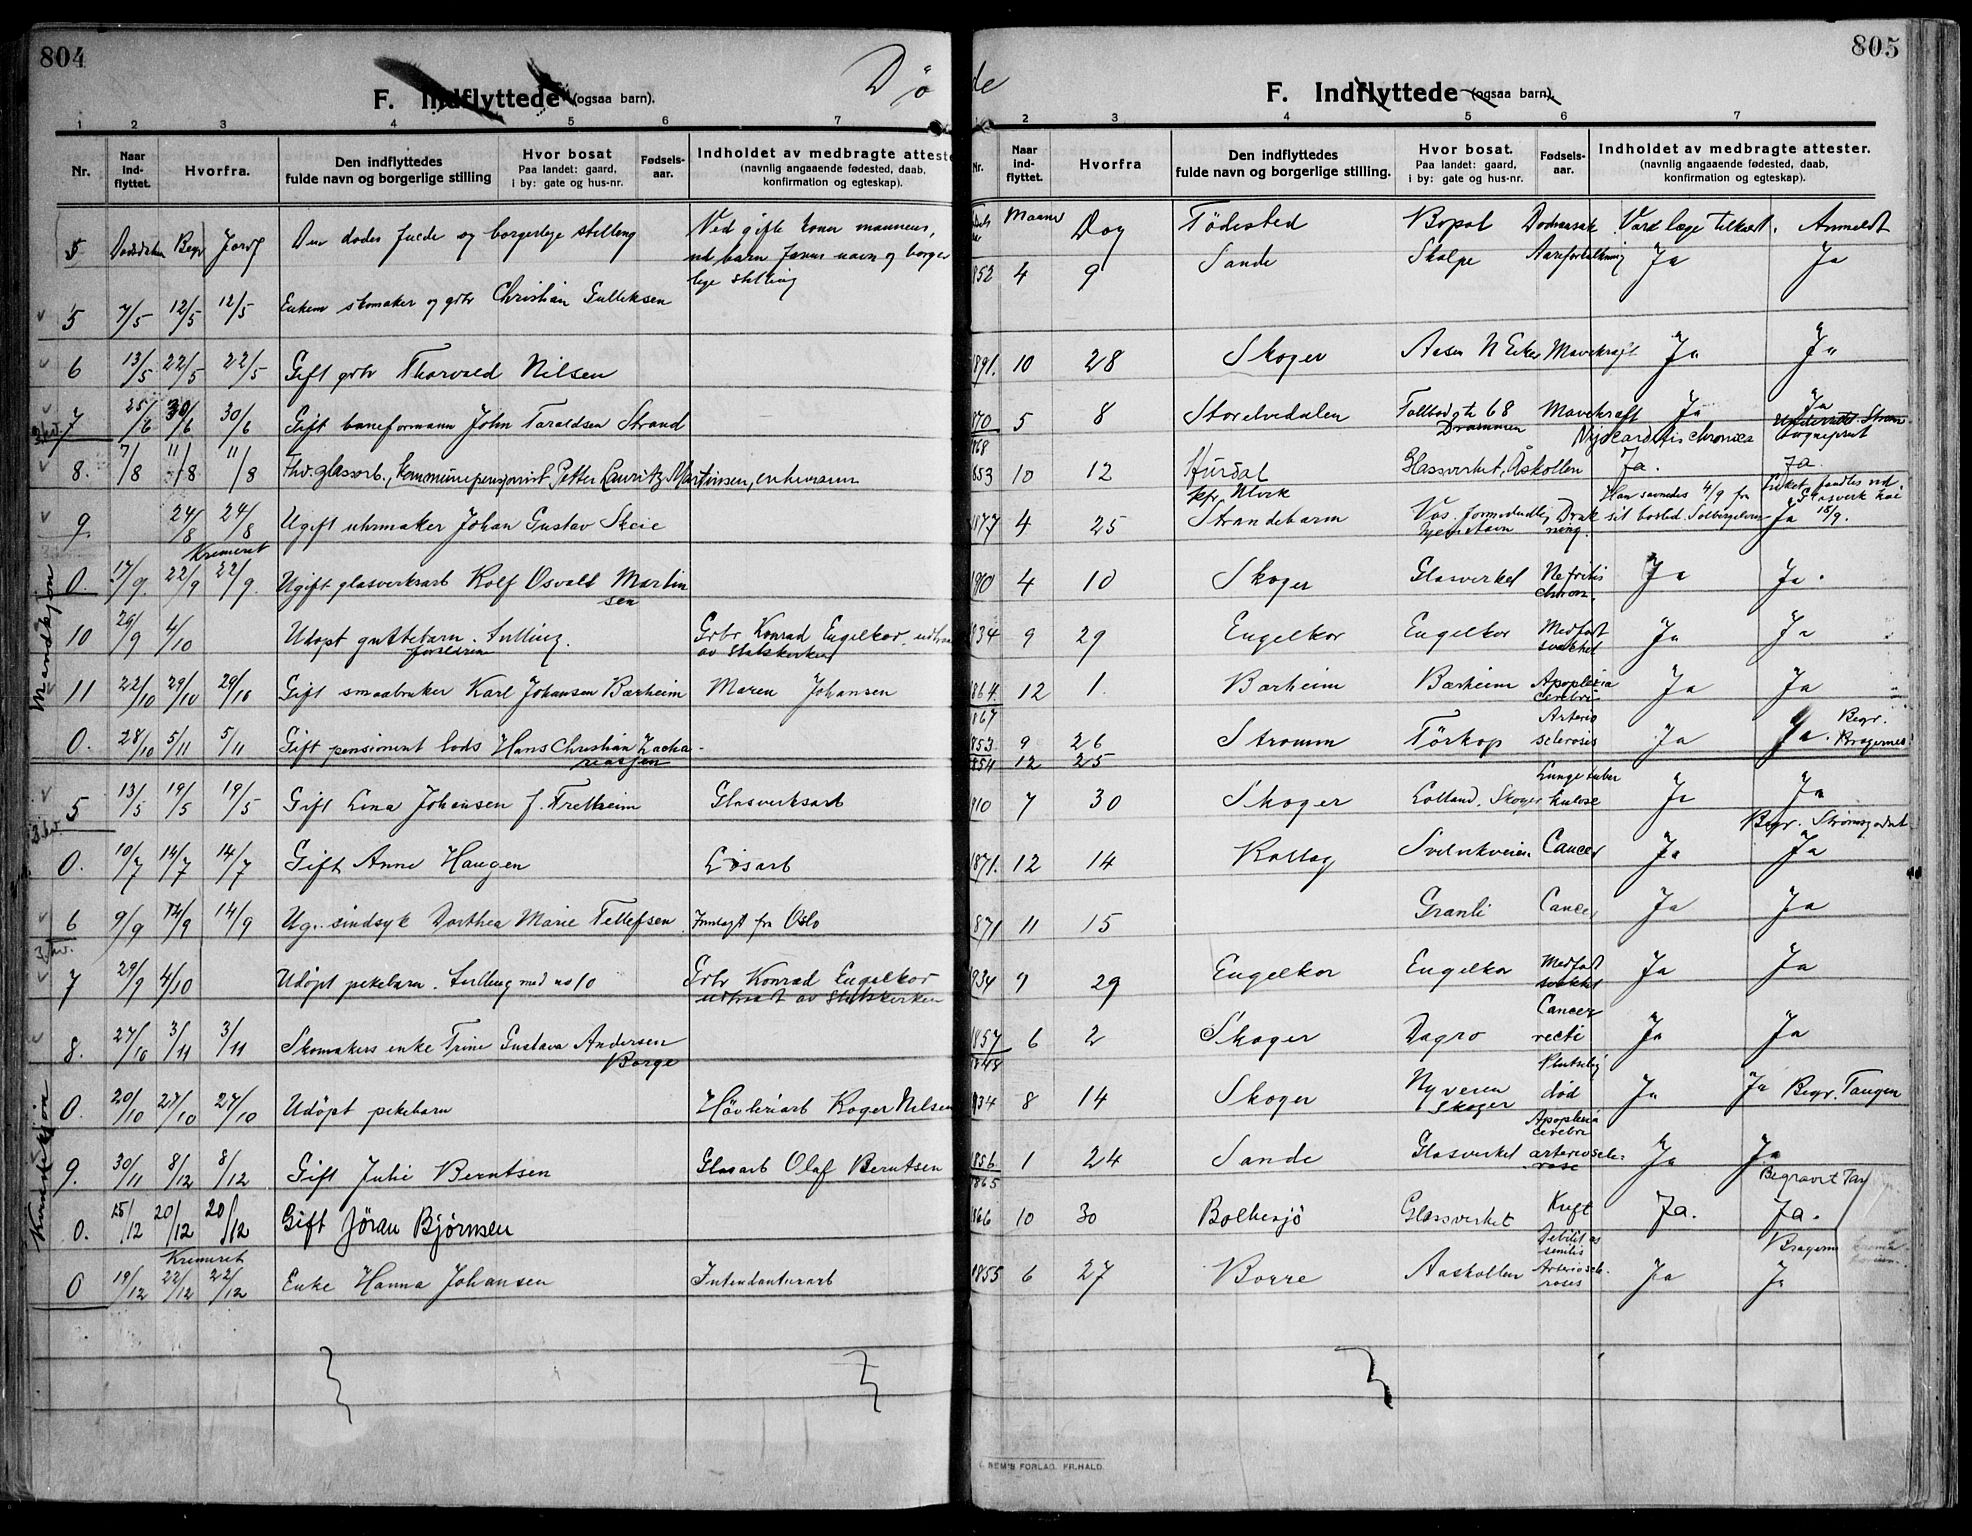 804
Dø
F. Indflyttede (ogsaa barn).
1 2 3 4 5 6 7
Nr.
Naar ind-flyttet.
Hvorfra.
Den indflyttedes fulde navn og borgerlige stilling
Hvor bosat Paa landet: gaard, i by: gate og hus-nr.
Fødsels-aar.
Indholdet av medbragte attester (navnlig angaaende fødested, daab, konfirmation og egteskap).
Dødsdatum Begr Jordf
Den dødes fulde og borgerlige stilling
Ved gifte koner mannens,
ved barn farens navn og borger
lige stilling
5 7/5 12/5 12/5 Enkem skomaker og grbr Christian Gulliksen
6 13/5 22/5 22/5 Gift grbr Thorvald Nilsen
7 25/6 30/6 30/6 Gift baneformann John Taraldsen Strand
3. kv.
8. 7/8 11/8 11/8 Fhv. glassarb., kommunepensjonist Petter Lauritz Martinsen, enkemann
9. 24/8 24/8 Ugift uhrmaker Johan Gustav Skeie
Kremeret
0. 17/9. 22/9 22/9. Ugift glasverksarb Rolf Osvald Martin
sen
Mandkjøn
10 29/9 4/10 Udøpt guttebarn. Tvilling. Grbr Konrad Engelkor.
foreldrene av statskirken
11 22/10 29/10 29/10 Gift smaabruker Karl Johansen Bærheim Maren Johansen
0. 28/10 5/11 5/11 Gift pensionert lods Hans Christian Zacha-
riassen
5 13/5 19/5 19/5 Gift Lina Johansen f. Fretheim Glasverksarb
3. kv.
0. 10/7 14/7 14/7 Gift Anne Haugen Løsarb
6 9/9 14/9 14/9 Ug. sindsyk Dorthea Marie Tellefsen. Innlagt fra Oslo
3. kv.
7 29/9 4/10 Udøpt pikebarn. Tvilling med no 10 Grbr Konrad Engelkor
utmeldt av statskirken
8. 27/10 3/11 3/11 Skomakers enke Trine Gustava Andersen
Borge
Kvindekjøn
0. 20/10 27/10 27/10 Udøpt pikebarn Høvleriarb Roger Nilsen
9. 30/11 8/12 8/12 Gift Julie Berntsen Glasarb Olaf Berntsen
0. 15/12 20/12 20/12 Gift Jöran Bjørnsen
Kremeret
0 19/12 22/12 22/12 Enke Hanna Johansen Intendanturarb
805
de
F. Indflyttede (ogsaa barn).
2 3 4 5 6 7
Nr.
Naar ind-flyttet.
Hvorfra
Den indflyttedes fulde navn og borgerlige stilling.
Hvor bosat. Paa landet: gaard, i by: gate og hus-nr.
Fødsels-aar.
Indholdet av medbragte attester. (navnlig angaaende fødested, daab, konfirmation og egteskap).
Maaned Dag Fødested Bopæl Dødsaarsak Vard læge tilkaldt. Anmeldt
852 4 9 Sande Skalpe Aareforkalkning Ja Ja
1891. 10 28 Skoger Aasen N Eiker Mavekræft Ja Ja
870 5 8 Storelvedalen Tollbodgt 68 Mavekræft Ja Ja
Drammen
868
Myocarditis chronica
853 10 12 Hurdal Glassverket, Åskollen Ja. Ja.
Han savnedes 4/9 fra
1877 4 25 Strandebarm Vas. formodentlig Druk sit bosted Solbergelven Ja 18/9.
ning.
1910 4 10 Skoger Glasverket Nefritis Ja Ja.
chron.
934 9 29 Engelkor Engelkor Medfødt Ja Ja
svakhet
1864 12 1. Bærheim Bærheim Apoplexia Ja Ja
cerebri
867
Arterio Begr.
853. 9 26 Strømm Tørkop sclerosis Ja Ja. Bragernes
854 12 25
Lungetuber
910 7 30 Skoger Lolland, Skoger kulose Ja Ja
Begr. Strømsgodset
1871. 12 14 Rollag Svelvikveien Cancer Ja Ja
871 11 15 Granli Cancer Ja Ja
934 9 29 Engelkor Engelkor Medfødt Ja Ja
svakhet
Cancer
1857 6 2 Skoger Dagro recti Ja Ja
1848
Plutselig
934 8 14 Skoger Nyveien død Ja Ja Begr. Tangen
Skoger
Apoplexia
cerebri
1856 1 24 Sande Glasverket arterioscle- Ja Ja
rose
1865
Begravet Tan
866 10 30 Bolkesjö Glassverket Kreft Ja. Ja.
Debilitas
senilis Bragerne
1855 6 27 Borre Aaskollen Arterioscle- Ja Ja
rosis
NEM'S FORLAG. FR. HALD.